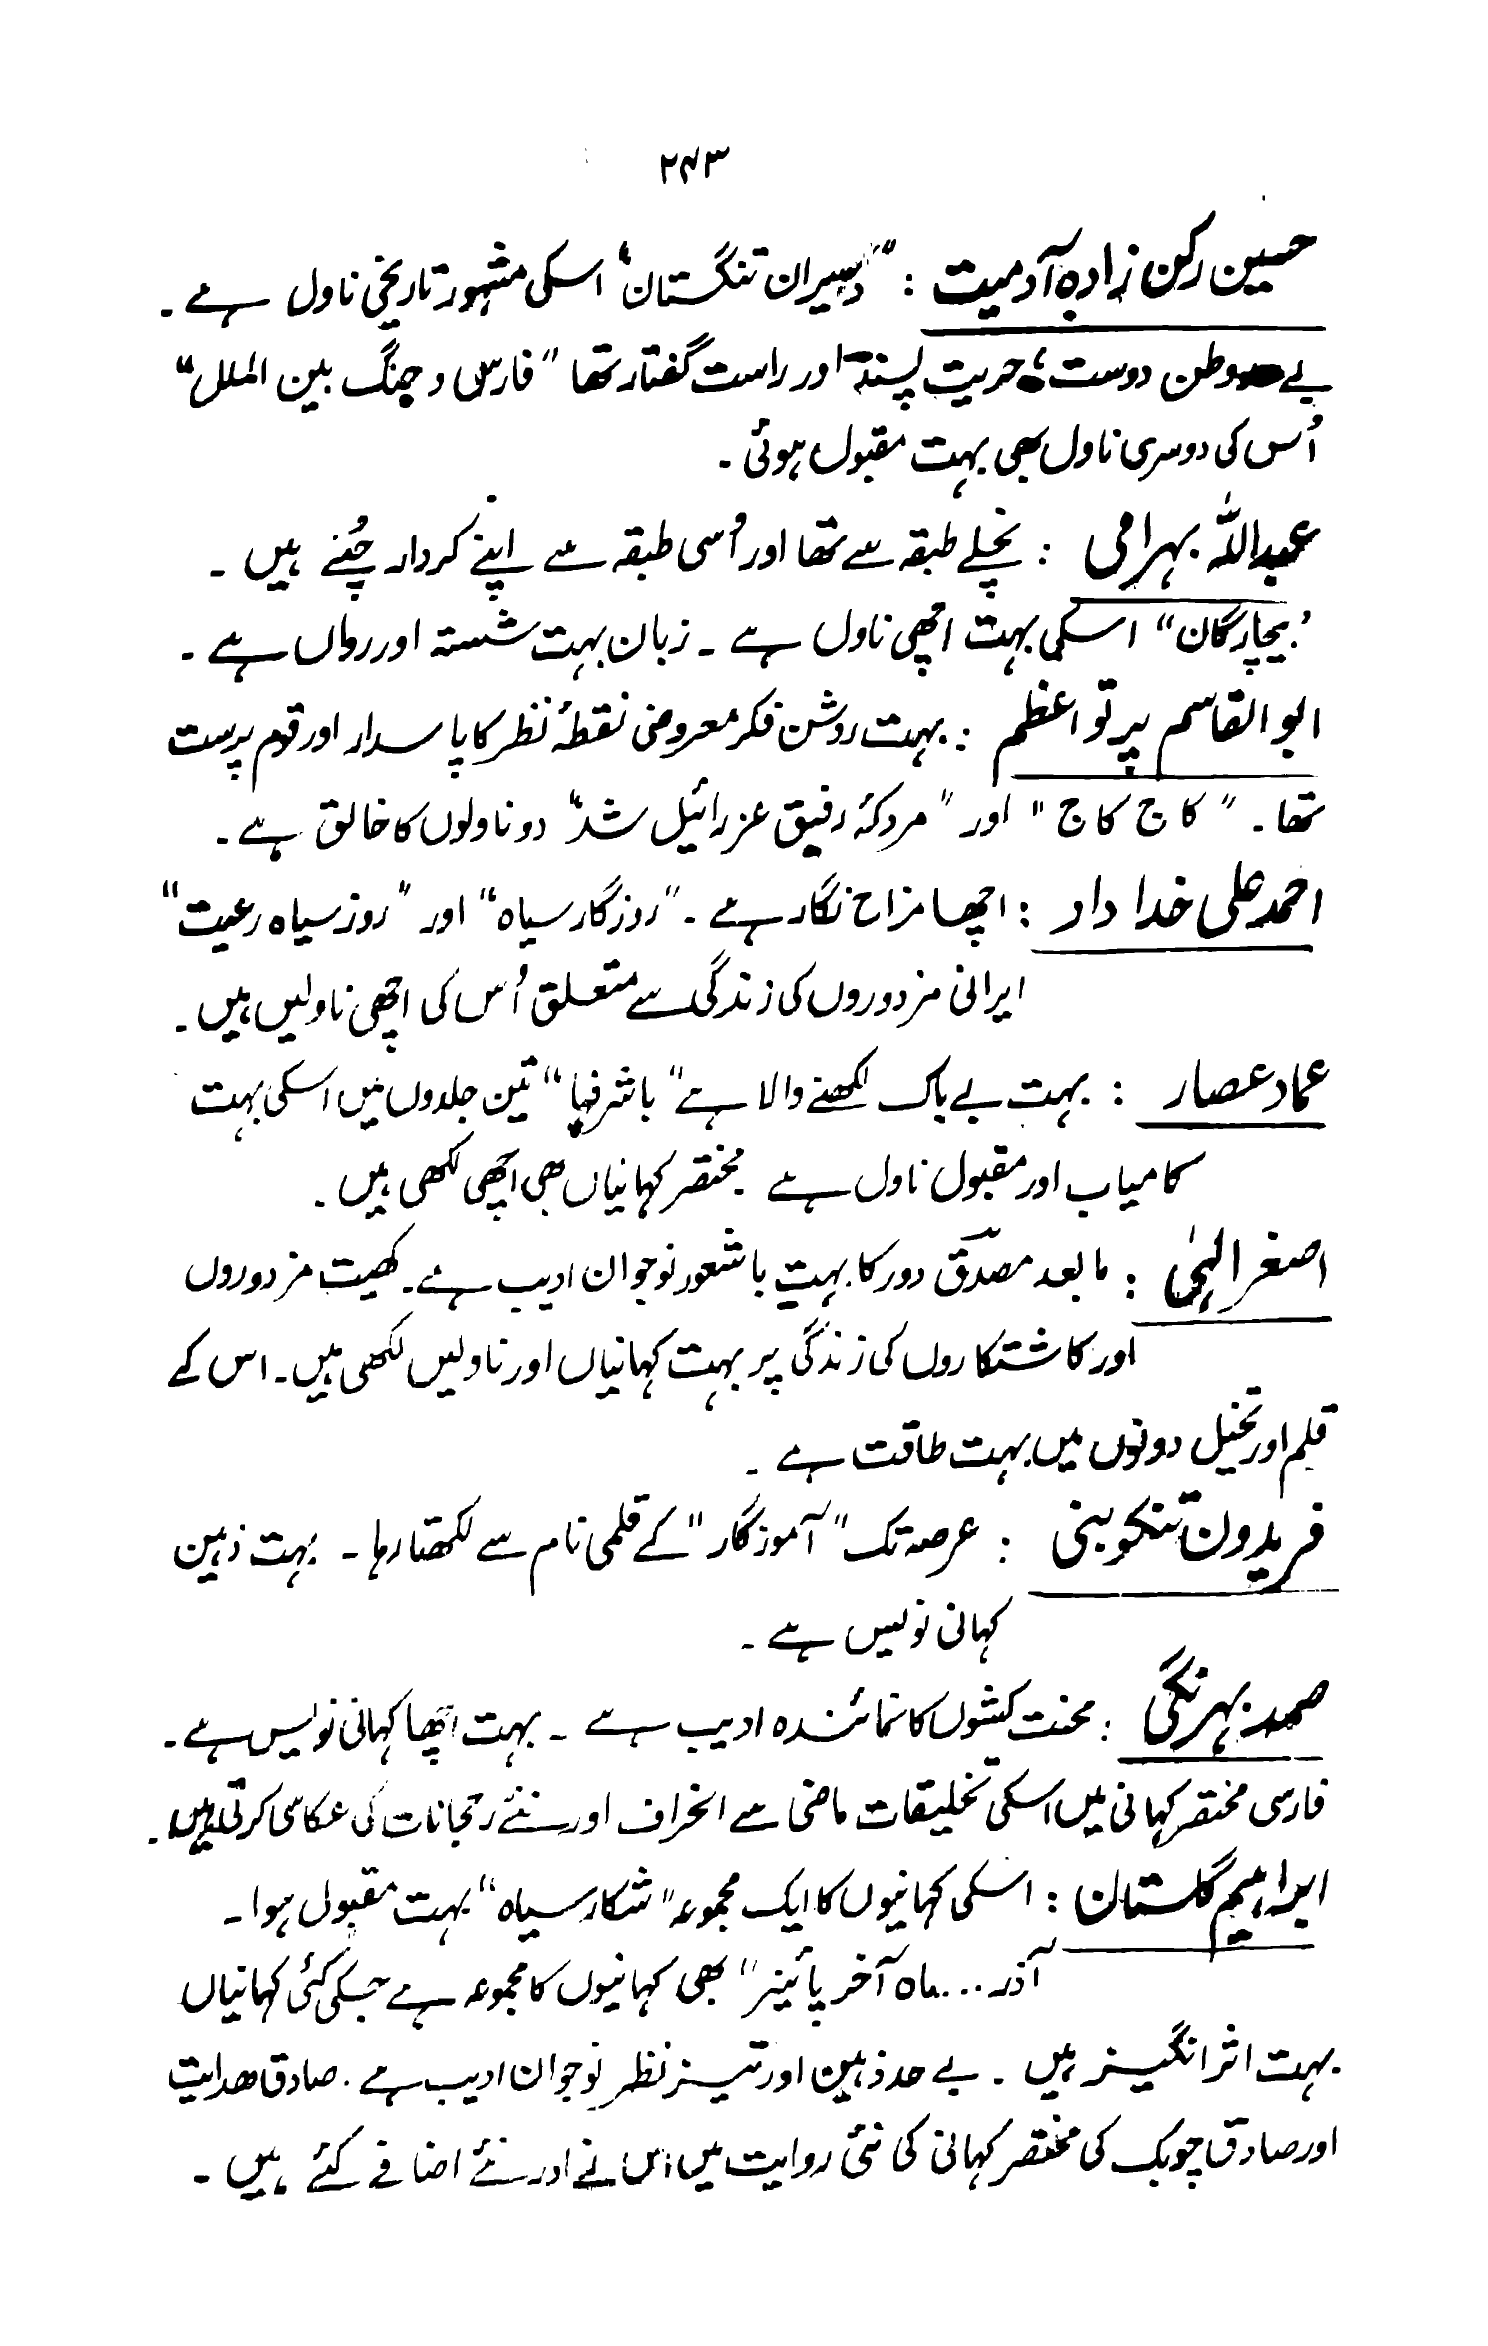 ۲۴۳
حسین رکن زادہ آدمیت : "دلیران تنگستان" اسکی مشہور تاریخی ناول ہے۔
یہ وطن دوست، حریت پسند اور راست گفتار تھا "فارس و جنگ بین الملل"
اُس کی دوسری ناول بھی بہت مقبول ہوئی۔
عبداللہ بہرامی : نچلے طبقہ سے تھا اور اُسی طبقہ سے اپنے کردار چُنے ہیں۔
"بیچارگان" اسکی بہت اچھی ناول ہے۔ زبان بہت شستہ اور رواں ہے۔
ابوالقاسم پرتو اعظم : بہت روشن فکر معروضی نقطۂ نظر کا پاسدار اور قوم پرست
تھا۔ "کاج کاج" اور "مردکۂ رفیق عزرائیل شد" دو ناولوں کا خالق ہے۔
احمد علی خدا دار : اچھا مزاح نگار ہے۔ "روزگار سیاہ" اور "روز سیاہ رعیت"
ایرانی مزدوروں کی زندگی سے متعلق اُس کی اچھی ناولیں ہیں۔
عماد عصار : بہت بے باک لکھنے والا ہے "باشرفہا" تین جلدوں میں اسکی بہت
کامیاب اور مقبول ناول ہے مختصر کہانیاں بھی اچھی لکھی ہیں۔
اصغر الہٰی : مابعد مصدّق دور کا بہت باشعور نوجوان ادیب ہے۔ کھیت مزدوروں
اور کاشتکاروں کی زندگی پر بہت کہانیاں اور ناولیں لکھی ہیں۔ اس کے
قلم اور تخیل دونوں میں بہت طاقت ہے۔
فریدون تنکوبنی : عرصہ تک "آموزگار" کے قلمی نام سے لکھتا رہا۔ بہت ذہین
کہانی نویس ہے۔
صمد بہرنگی : محنت کشوں کا نمائندہ ادیب ہے۔ بہت اچھا کہانی نویس ہے۔
فارسی مختصر کہانی میں اسکی تخلیقات ماضی سے انحراف اور نئے رجحانات کی عکاسی کرتی ہیں۔
ابراہیم گلستان : اسکی کہانیوں کا ایک مجموعہ "شکار سیاہ" بہت مقبول ہوا۔
آذر... ماہ آخر پائیز" بھی کہانیوں کا مجموعہ ہے جسکی کئی کہانیاں
بہت اثر انگیز ہیں۔ بے حد ذہین اور تیز نظر نوجوان ادیب ہے۔ صادق ھدایت
اور صادق چوبک کی مختصر کہانی کی نئی روایت میں اس نے اور نئے اضافے کئے ہیں۔